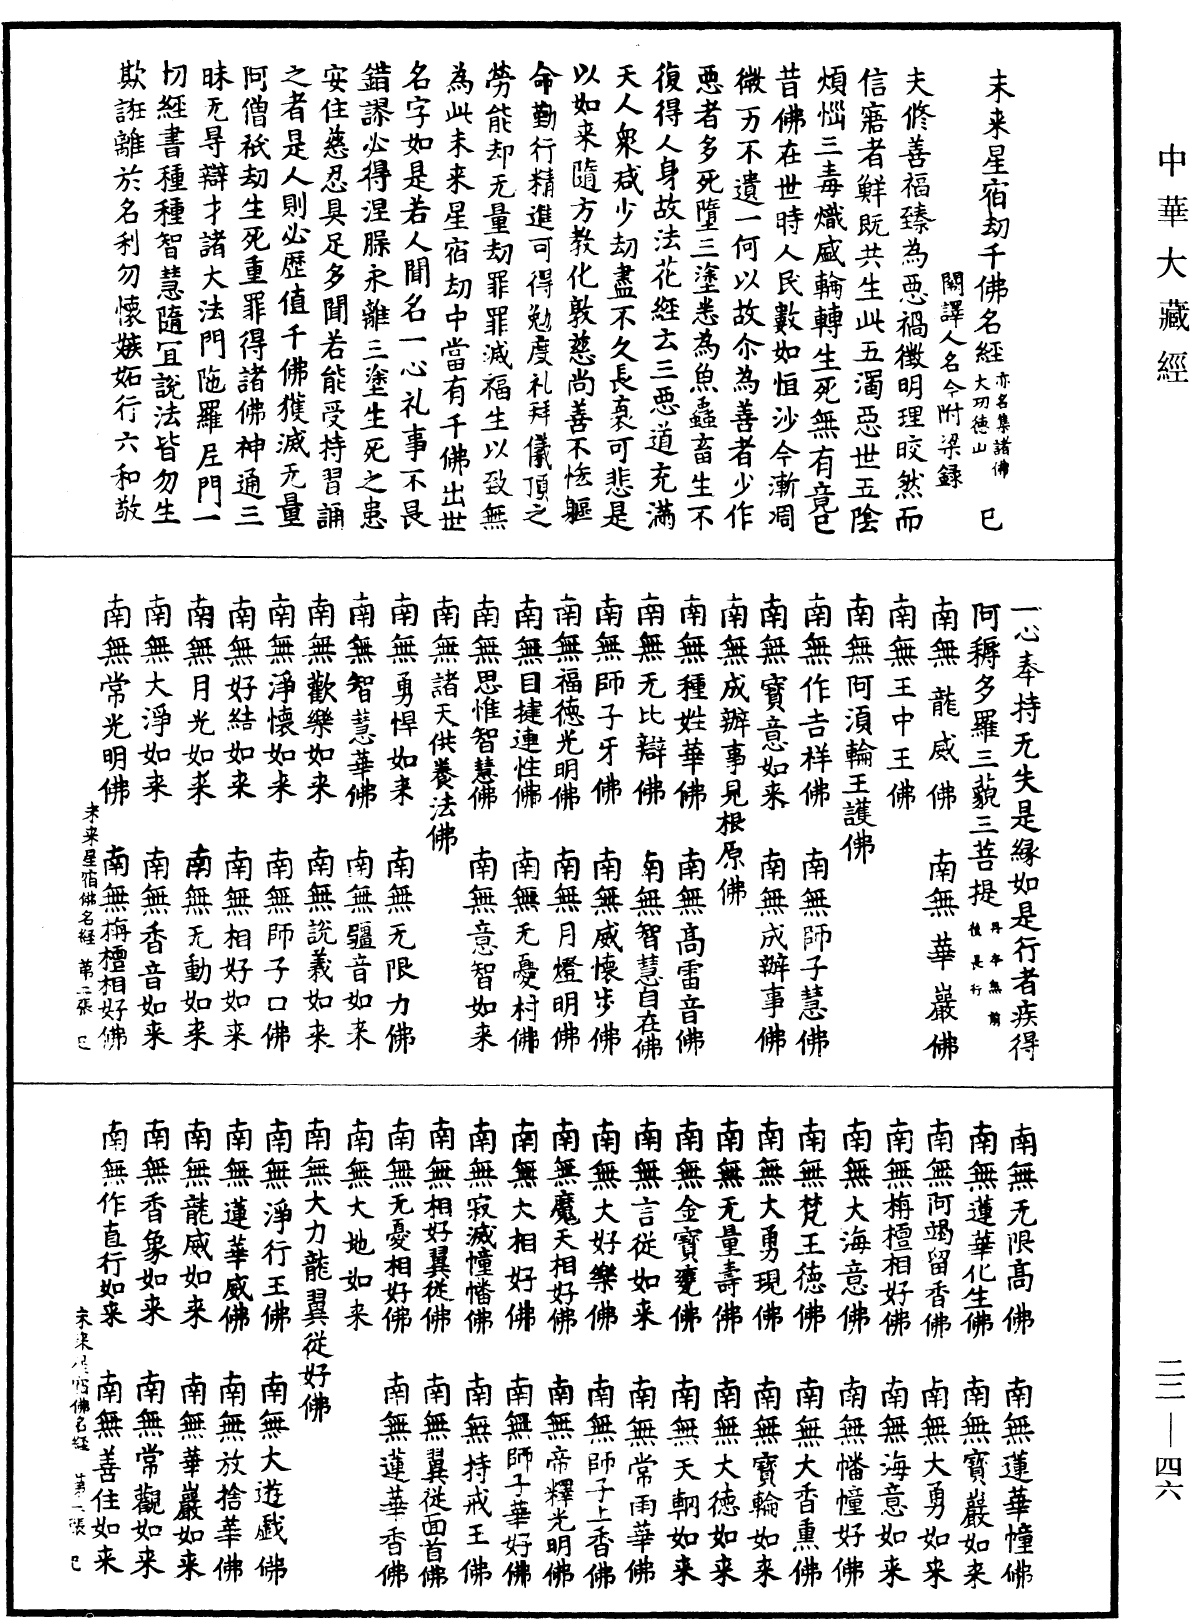 中華大藏經
未来星宿劫千佛名經 亦名集諸佛大功徳山 巳
闕譯人名今附梁録
夫修善福臻為惡禍徵明理皎然而
信寤者鮮既共生此五濁惡世五陰
煩惱三毒熾盛輪轉生死無有竟已
昔佛在世時人民數如恒沙今漸凋
微万不遺一何以故尒為善者少作
惡者多死墮三塗悉為魚蟲畜生不
復得人身故法花經云三惡道充滿
天人衆减少劫盡不久長衰可悲是
以如来隨方教化敦慈尚善不恡軀
命勤行精進可得勉度礼拜儀頂之
勞能却无量劫罪罪滅福生以致無
為此未来星宿劫中當有千佛出世
名字如是若人聞名一心礼事不畏
錯謬必得涅槃永離三塗生死之患
安住慈忍具足多聞若能受持習誦
之者是人則必歷值千佛獲滅无量
阿僧祇劫生死重罪得諸佛神通三
昧无㝵辯才諸大法門陁羅尼門一
切經書種種智慧隨冝說法皆勿生
欺誑離於名利勿懷嫉妬行六和敬
一心奉持无失是緣如是行者疾得
阿耨多羅三藐三菩提
南無龍威佛 南無華巖佛
南無王中王佛
南無阿湏輪王護佛
南無作吉祥佛 南無師子慧佛
南無寶意如来 南無成辦事佛
南無成辦事見根原佛
南無種姓華佛 南無髙雷音佛
南無无比辯佛 南無智慧自在佛
南無師子牙佛 南無威懷步佛
南無福德光明佛 南無月燈明佛
南無目揵連性佛 南無无憂村佛
南無思惟智慧佛 南無意智如来
南無諸天供養法佛
南無勇悍如来 南無无限力佛
南無智慧華佛 南無疆音如来
南無歡樂如来 南無說義如来
南無淨懷如来 南無師子口佛
南無好結如来 南無相好如来
南無月光如来 南無无動如来
南無大淨如来 南無香音如来
南無常光明佛 南無栴檀相好佛
未来星宿佛名經 第二張 巳
南無无限髙佛 南無蓮華幢佛
南無蓮華化生佛 南無寶巖如来
南無阿竭留香佛 南無大勇如来
南無栴檀相好佛 南無海意如来
南無大海意佛 南無幡幢好佛
南無梵王德佛 南無大香熏佛
南無大勇現佛 南無寶輪如来
南無无量壽佛 南無大德如来
南無金寶甕佛 南無天輞如来
南無言從如来 南無常雨華佛
南無大好樂佛 南無師子上香佛
南無魔天相好佛 南無帝釋光明佛
南無大相好佛 南無師子華好佛
南無寂滅幢幡佛 南無持戒王佛
南無相好翼從佛 南無翼從面首佛
南無无憂相好佛 南無蓮華香佛
南無大地如来
南無大力龍翼從好佛
南無淨行王佛 南無大遊戲佛
南無蓮華威佛 南無放捨華佛
南無龍威如来 南無華巖如来
南無香象如来 南無常觀如来
南無作直行如来 南無善住如来
二二—四六